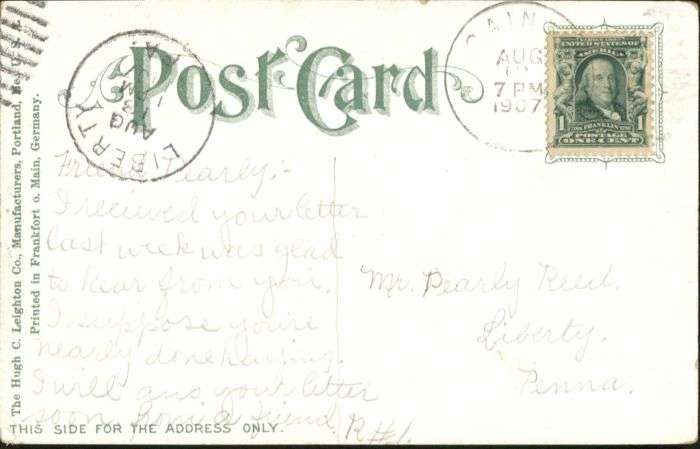 Post Card
LIBERTY
AUG
13
PA.
AUG
7 PM
1907
UNITED STATES OF
AMERICA
1
1
FRANKLIN
POSTAGE
ONE CENT
The Hugh C. Leighton Co., Manufacturers, Portland, Me., U.S.A.
Printed in Frankfort o. Main, Germany.
Friend Pearly:-
I recieved your letter
last week was glad
to hear from you.
I suppose you're
nearly done haying.
I will ans your letter
soon from a friend
R #1.
Mr. Pearly Reed.
Liberty.
Penna.
THIS SIDE FOR THE ADDRESS ONLY.